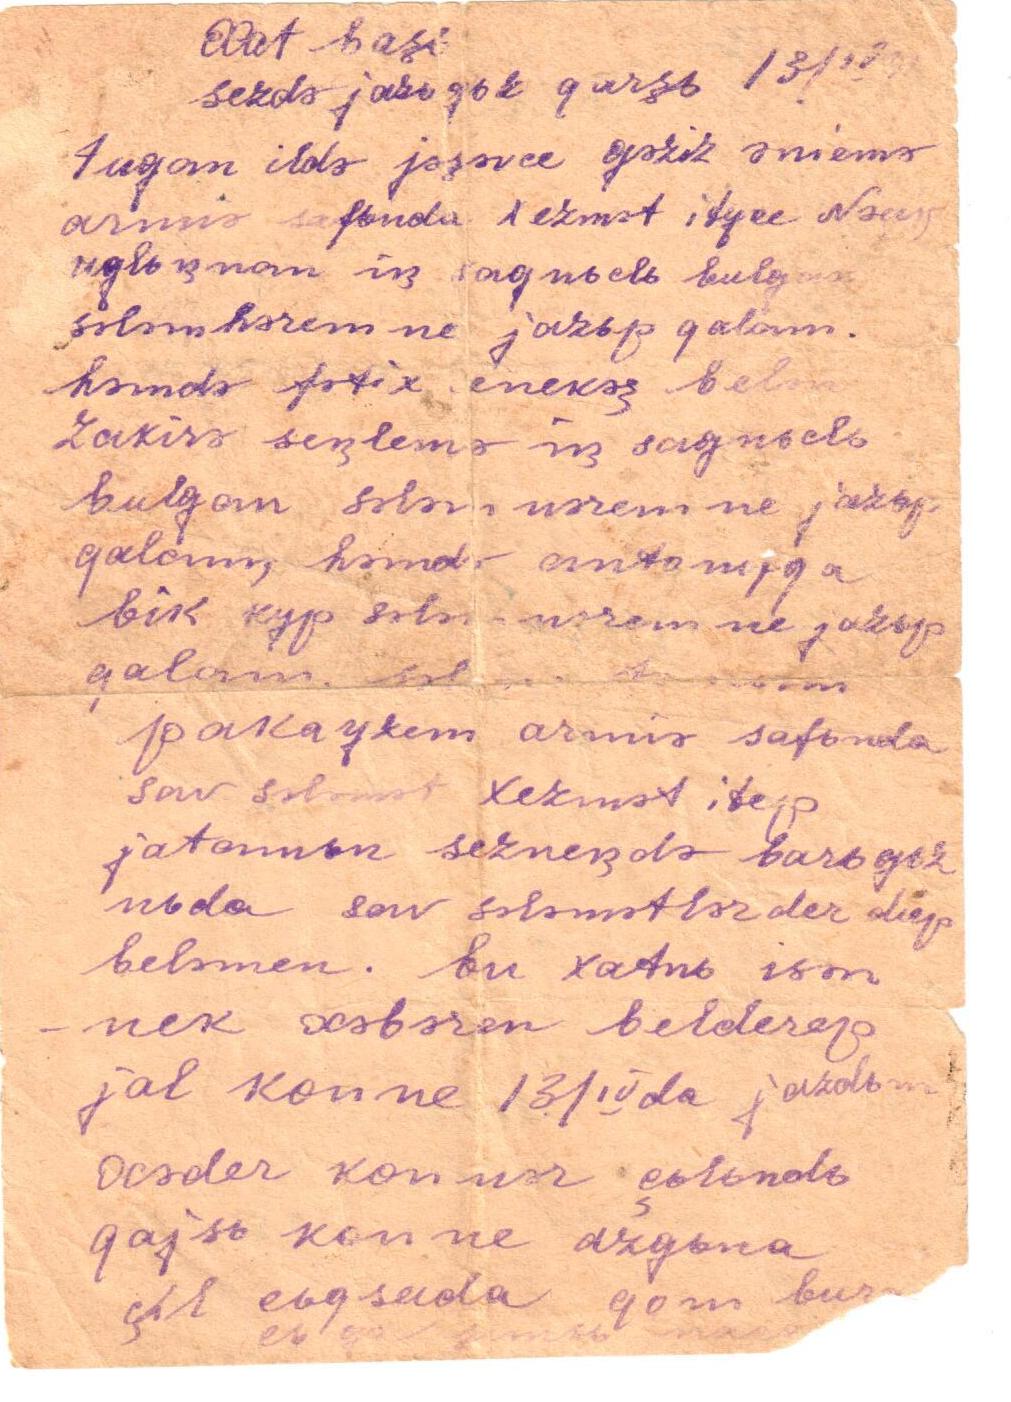 Xat başi
sezdə jazugьz qarşь 13/IV
tugan ildə jəşəvce gəziz əniemə
armiə safьnda xezmət ityce
uglьꞑnan iꞑ sagnьclь bulgan
səlamhəremne jazьp qalam.
həmdə fətix enekəş belən
Zakirə seꞑlemə iꞑ sagnьclь
bulgan səlamnəremne jazьp
qalam, həmdə
bik kyp səlamnəremne jazьp
qalam.
yzem armiə safьnda
sav səlamət xezmət itep
jatamьn sezneꞑdə barьgьz
nьda sav səlamətlərder diep
beləmen. bu xatnь isən
-nek xəbəren belderep
jal kɵnne 13/IV da jazdьm
xəzer kɵnnər çьlьndь
qajsь kɵnne azgьna
çil cьqsada qom